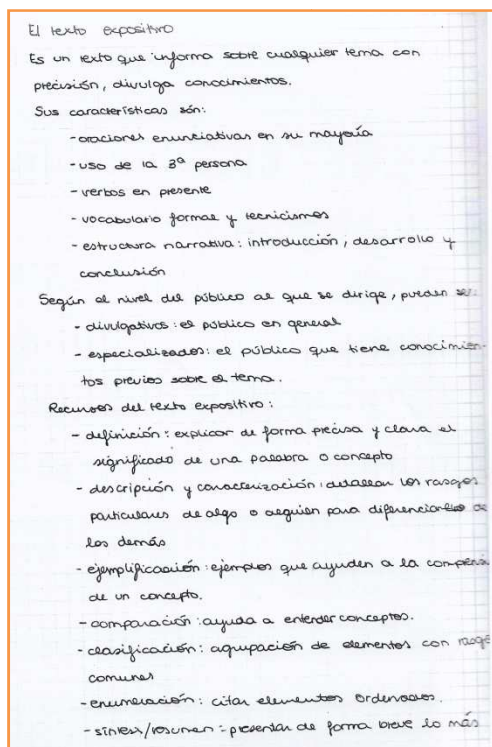 El texto expositivo
Es un texto que informa sobre cualquier tema con
precisión, divulga conocimientos.
Sus características són:
- oraciones enunciativas en su mayoría
- uso de la 3ª persona
- verbos en presente
- vocabulario formal y tecnicismos
- estructura narrativa: introducción, desarrollo y
conclusión
Según el nivel del público al que se dirige, pueden ser:
- divulgativos: el público en general
- especializados: el público que tiene conocimien-
tos previos sobre el tema.
Recursos del texto expositivo:
- definición: explicar de forma precisa y clara el
significado de una palabra o concepto
- descripción y caracterización: detallan los rasgos
particulares de algo o alguien para diferenciarlo de
los demás
- ejemplificación: ejemplos que ayuden a la comprens
de un concepto.
- comparación: ayuda a entender conceptos.
- clasificación: agrupación de elementos con rasgo
comunes
- enumeración: citar elementos ordenados.
- síntesis/resumen: presentar de forma breve lo más